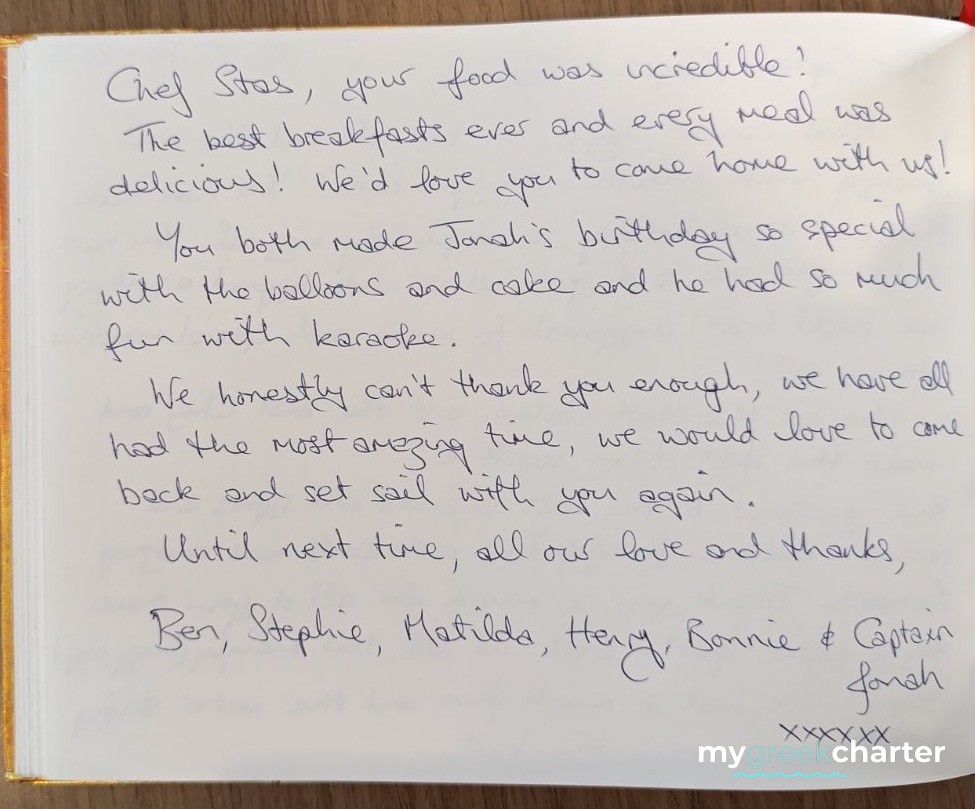 Chef Stas, your food was incredible!
The best breakfasts ever and every meal was
delicious! We'd love you to come home with us!
You both made Jonah's birthday so special
with the balloons and cake and he had so much
fun with karaoke.
We honestly can't thank you enough, we have all
had the most amazing time, we would love to come
back and set sail with you again.
Until next time, all our love and thanks,
Ben, Stephie, Matilda, Henry, Bonnie & Captain
Jonah
xxxxxx
mygreekcharter